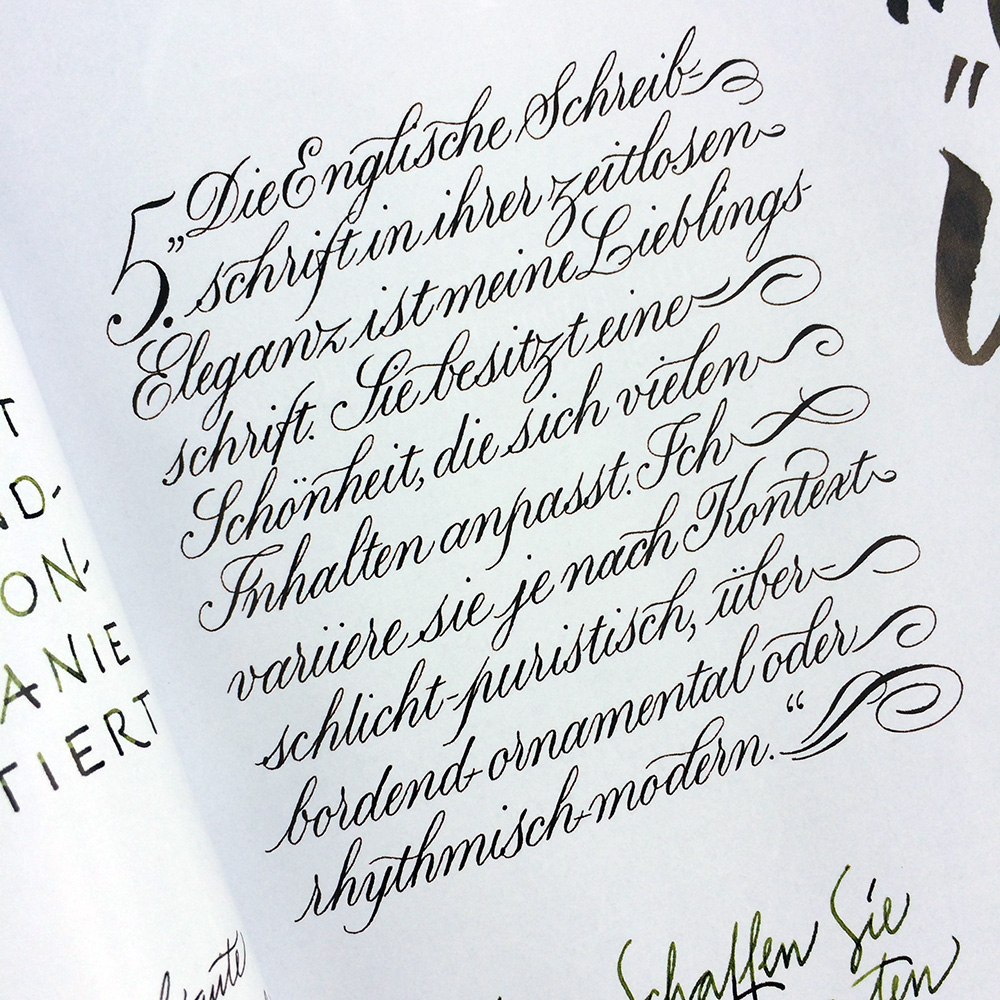 5. „Die Englische Schreib-
schrift in ihrer zeitlosen
Eleganz ist meine Lieblings-
schrift. Sie besitzt eine
Schönheit, die sich vielen
Inhalten anpasst. Ich
variiere sie je nach Kontext
schlicht-puristisch, über-
bordend-ornamental oder
rhythmisch-modern.“
T
ND-
ON-
ANIE
TIERT
Schaffen Sie
ten